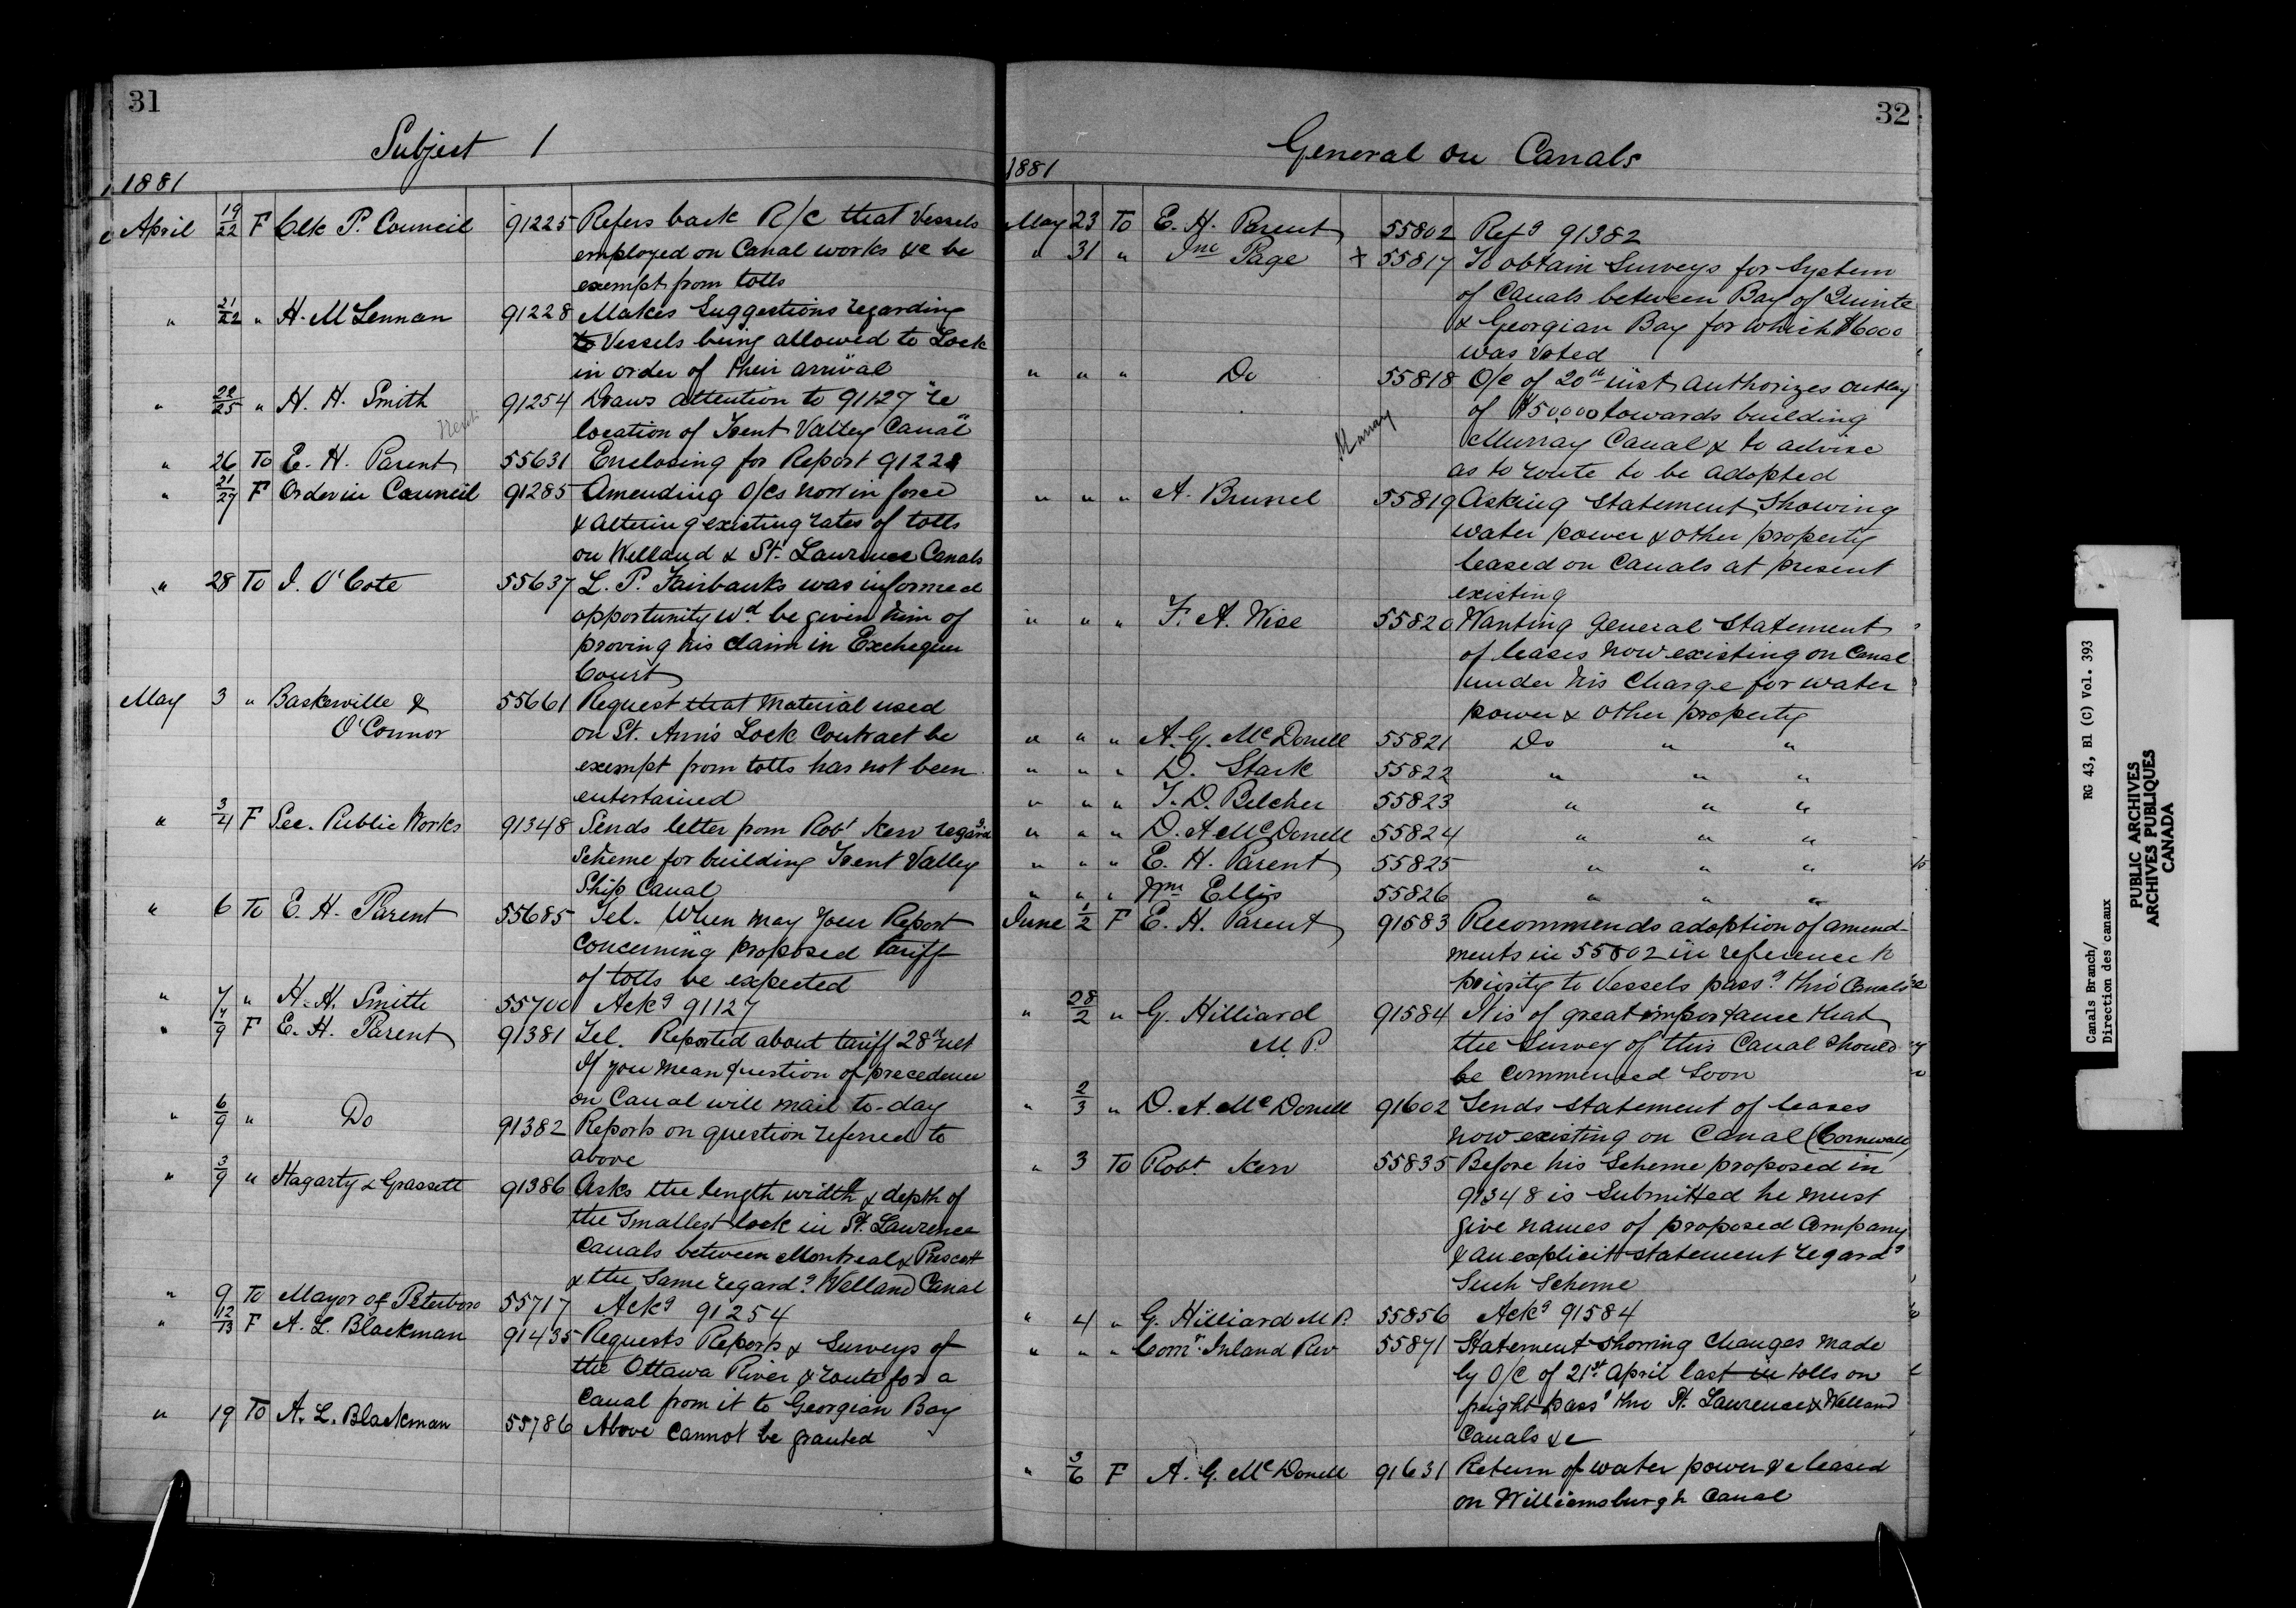 31
Subject 1
1881
April 19/22 F Clk P. Council 91225 Refers back R/c that Vessels
employed on Canal works &c be
exempt from tolls
" 21/22 " H. McLennan 91228 Makes Suggestions regarding
to Vessels being allowed to Lock
in order of their arrival
" 22/25 " H. H. Smith 91254 Draws attention to 91127 "re
location of Trent Valley Canal"
" 26 To E. H. Parent 55631 Enclosing for Report 91228
" 21/27 F Order in Council 91285 Amending O/Cs now in force
& altering existing rates of tolls
on Welland & St. Lawrence Canals
" 28 To I. O'Cote 55637 L. P. Fairbanks was informed
opportunity wd. be given him of
proving his claim in Exchequer
Court
May 3 " Baskerville & 55661 Request that material used
O'Connor on St. Ann's Lock Contract be
exempt from tolls has not been
entertained
" 3/4 F Sec. Public Works 91348 Sends letter from Robt Kerr regardg
Scheme for building Trent Valley
Ship Canal
" 6 To E. H. Parent 55685 Tel. When may your Report
concerning proposed tariff
of tolls be expected
" 7 " H. H. Smith 55700 Ackg 91127
" 7/9 F E. H. Parent 91381 Tel. Reported about tariff 28th ult
If you mean question of precedence
on Canal will mail to-day
" 6/9 " Do 91382 Reports on question referred to
above
" 3/9 " Hagarty & Grassett 91386 Asks the length width & depth of
the Smallest lock in St. Lawrence
Canals between Montreal & Prescott
& the Same regardg Welland Canal
" 9 To Mayor of Peterboro 55717 Ackg 91254
" 12/13 F A. L. Blackman 91435 Requests Reports & Surveys of
the Ottawa River & route for a
Canal from it to Georgian Bay
" 19 To A. L. Blackman 55786 Above cannot be granted
32
General on Canals
1881
May 23 To E. H. Parent 55802 Refg 91382
" 31 " Jno Page X 55817 To obtain Surveys for System
of Canals between Bay of Quinte
& Georgian Bay for which $6000
was Voted
" " " Do 55818 O/C of 20th inst authorizes outlay
of $50,000 towards building
Murray
Murray Canal & to advise
as to route to be adopted
" " " A. Brunel 55819 Asking Statement Showing
water power & other property
leased on Canals at present
existing
" " " F. A. Wise 55820 Wanting General Statement
of leases now existing on Canal
under his Charge for water
power & other property
" " " A. G. McDonell 55821 Do " "
" " " D. Stark 55822 " " "
" " " T. D. Belcher 55823 " " "
" " " D. A. McDonell 55824 " " "
" " " E. H. Parent 55825 " " "
" " " Wm Ellis 55826 " " "
June 1/2 F E. H. Parent 91583 Recommends adoption of amend-
ments in 55802 in reference to
priority to Vessels passg thro' Canals
" 28/2 " G. Hilliard 91584 It is of great importance that
M.P. the Survey of this Canal should
be commenced soon
" 2/3 " D. A. McDonell 91602 Sends statement of leases
now existing on Canal (Cornwall)
" 3 To Robt. Kerr 55835 Before his Scheme proposed in
91348 is Submitted he must
give names of proposed Company
& an explicit statement regardg
Such Scheme
" 4 " G. Hilliard M.P. 55856 Ackg 91584
" " " Comr. Inland Rev 55871 Statement showing changes made
by O/C of 21st April last in tolls on
freight passg thro St. Lawrence & Welland
Canals &c
" 3/6 F A. G. McDonell 91631 Return of water power &c leased
on Williamsburgh Canal
Canals Branch/ RG 43, B1 (C) Vol. 393
Direction des canaux
PUBLIC ARCHIVES
ARCHIVES PUBLIQUES
CANADA